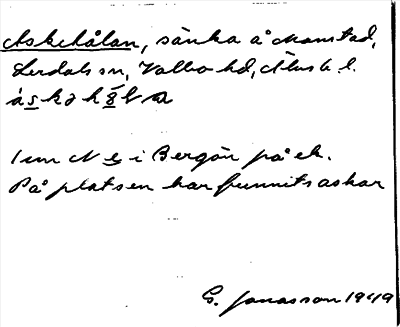 Askehålan, sänka å Monstad,
Lerdals sn, Valbo hd, Älvsb. l.
1 cm N g i Bergön på ek.
På platsen har funnits askar
G. Jonasson 1949